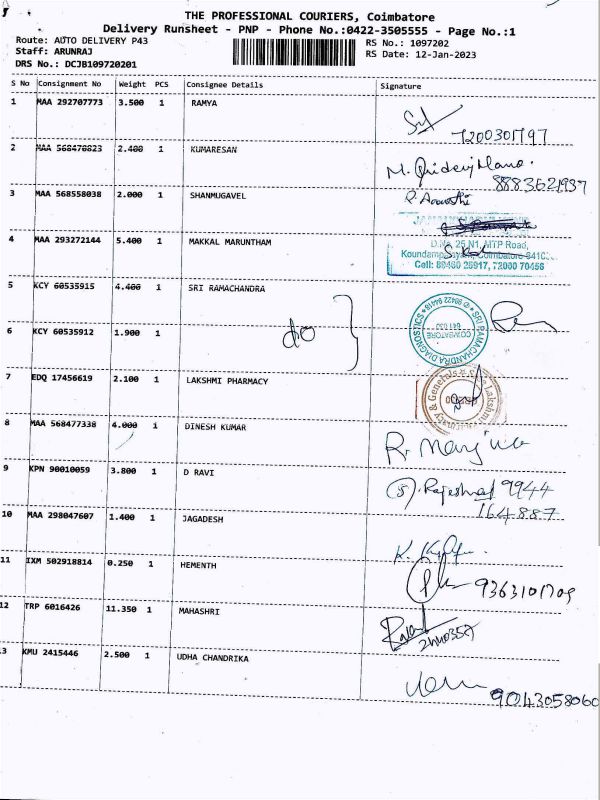 THE PROFESSIONAL COURIERS, Coimbatore
Delivery Runsheet - PNP - Phone No.:0422-3505555 - Page No.:1
Route: AUTO DELIVERY P43 RS No.: 1097202
Staff: ARUNRAJ RS Date: 12-Jan-2023
DRS No.: DCJB109720201
S No Consignment No Weight PCS Consignee Details Signature
1 MAA 292707773 3.500 1 RAMYA
7200301797
2 MAA 568470823 2.400 1 KUMARESAN
8883621937
3 MAA 568558038 2.000 1 SHANMUGAVEL
4 MAA 293272144 5.400 1 MAKKAL MARUNTHAM
D.No. 25 N1, MTP Road,
Cell: 89460 25917, 72000 70456
5 KCY 60535915 4.400 1 SRI RAMACHANDRA
SRI RAMACHANDRA DIAGNOSTICS
COIMBATORE
641 030
6 KCY 60535912 1.900 1 do
7 EDQ 17456619 2.100 1 LAKSHMI PHARMACY
8 MAA 568477338 4.000 1 DINESH KUMAR
9 KPN 90010059 3.800 1 D RAVI
9944
164887
10 MAA 298047607 1.400 1 JAGADESH
11 IXM 502918814 0.250 1 HEMENTH
12 TRP 6016426 11.350 1 MAHASHRI
3 KMU 2415446 2.500 1 UDHA CHANDRIKA
9043058060